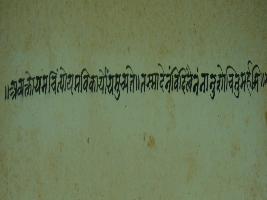 ॥अव्यक्तोयमचिंत्योयमविकार्योयमुच्यते॥तस्मादेवंविदित्वैनंनानुशोचितुमर्हसि॥